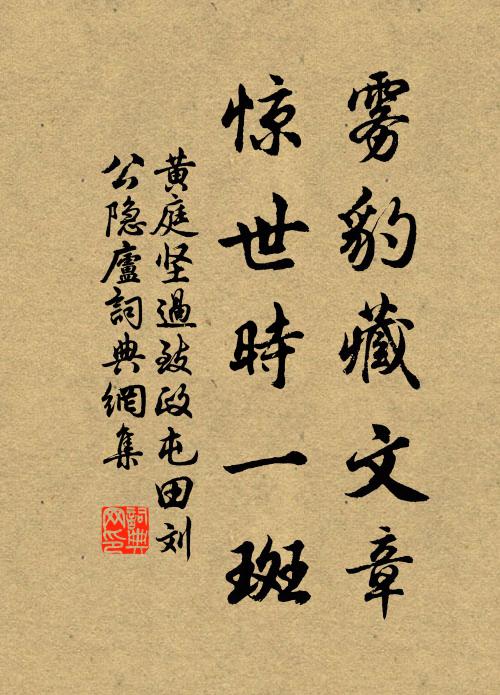 雾豹藏文章
惊世時一斑
黄庭坚過致政屯田刘
公隐廬詞典網集
詞典网印